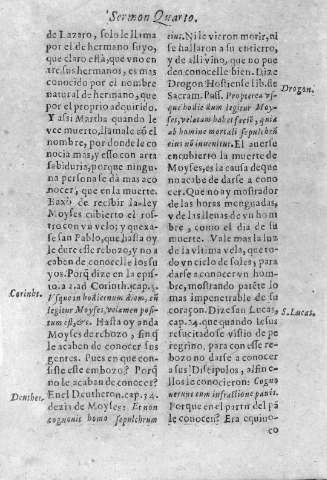 Sermon Quarto.
de Lazaro, solo le llama
por el de hermano suyo,
que claro està, que vno en
tre sus hermanos, es mas
conocido por el nombre
natural de hermano, que
por el proprio adquirido.
Y assi Martha quando le
vee muerto, llamale cõ el
nombre, por donde lo co
nocia mas, y esto con arta
sabiduria, porque ningu
na persona se dà mas a co
nocer, que en la muerte.
Baxò de recibir la ley
Moyses cubierto el ros-
tro con vn velo; y quexa-
se san Pablo, que hasta oy
le dure esse rebozo, y no a
caben de conocelle los su
yos. Porq̃ dize en la epis-
to. a 2. ad Corinth. cap. 3.
Vsque in hodiernum diem, cũ
legitur Moyses, velamen posi-
tum est, &c. Hasta oy anda
Moyses de rebozo, sin q̃
le acaben de conocer sus
gentes. Pues en que con-
siste este embozo? Porq̃
no le acaban de conocer?
En el Deutheron. cap. 34.
dezia de Moyses: Et non
cognouit homo sepulchrum
Corinht.
Deuther.
eius. Ni le vieron morir, ni
se hallaron a su entierro,
y de alli vino, que no pue
den conocelle bien. Dize
Drogon Hostiense lib. de
Sacram. Pass. Propterea vs-
que hodie dum legitur Moy-
ses, velatam habet faciẽ, quia
ab homine mortali sepulchrũ
eius nõ inuenitur. El auerse
encubierto la muerte de
Moyses, es la causa de que
no acabe de darse a cono-
cer. Que no ay mostrador
de las horas menguadas,
y de las llenas de vn hom
bre, como el dia de su
muerte. Vale mas la luz
de la vltima vela, que to-
do vn ciclo de soles, para
darse a conocer vn hom-
bre, mostrando patẽte lo
mas impenetrable de su
coraçon. Dize san Lucas,
cap. 24. que quando Iesus
resucitado se vistio de pe
regrino, para con esse re-
bozo no darse a conocer
a sus Discipulos, al fin e-
llos le conocieron: Cogno
uerunt eum in fractione panis.
Porque en el partir del pã
le conocen? Era equino-
co
Drogon.
S. Lucas.